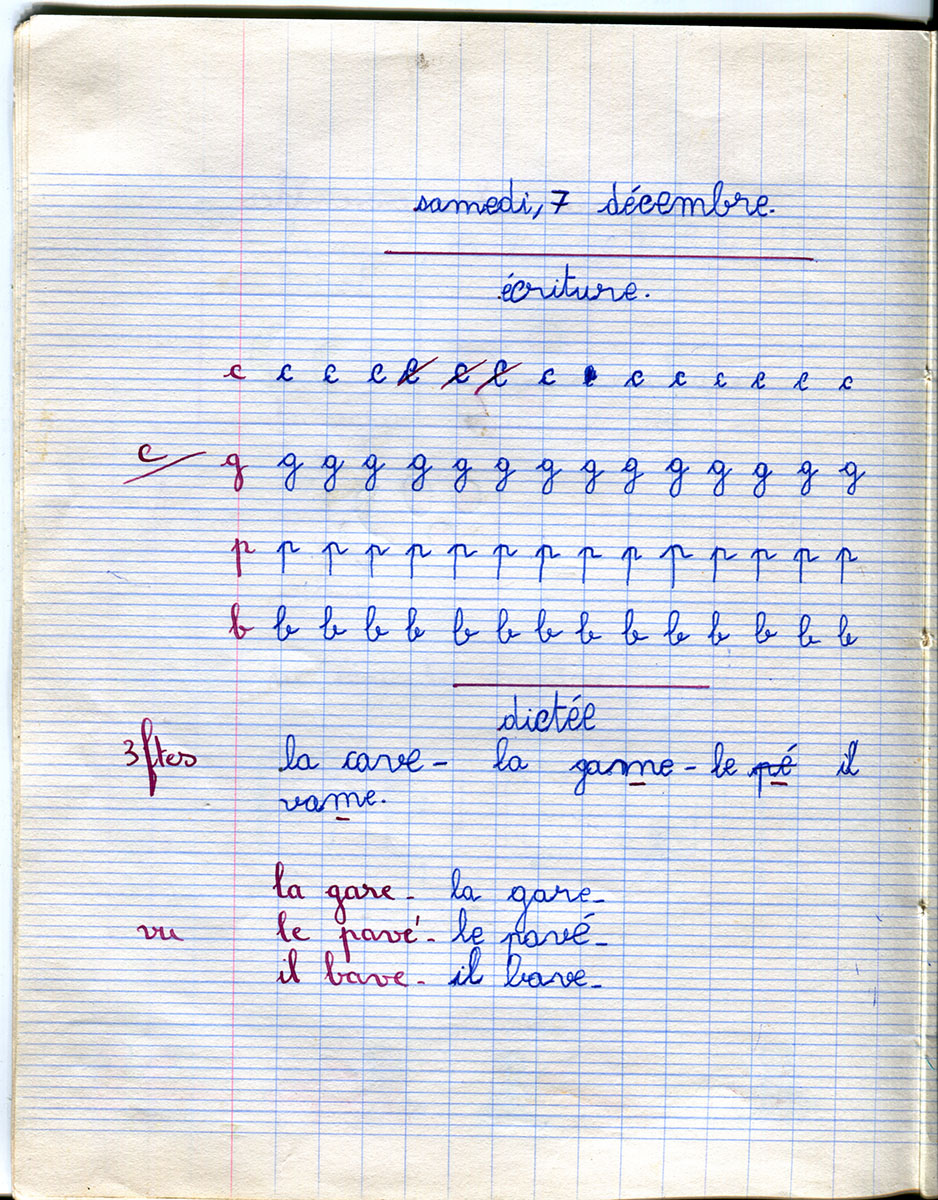 samedi, 7 décembre.
écriture.
c c c c c c c c c c c c c c
c g g g g g g g g g g g g g g g
p p p p p p p p p p p p p p p
b b b b b b b b b b b b b b b
dictée
3 ftes la cave - la game - le pé il
vame.
la gare - la gare -
vu le pavé - le pavé -
il bave - il bave -